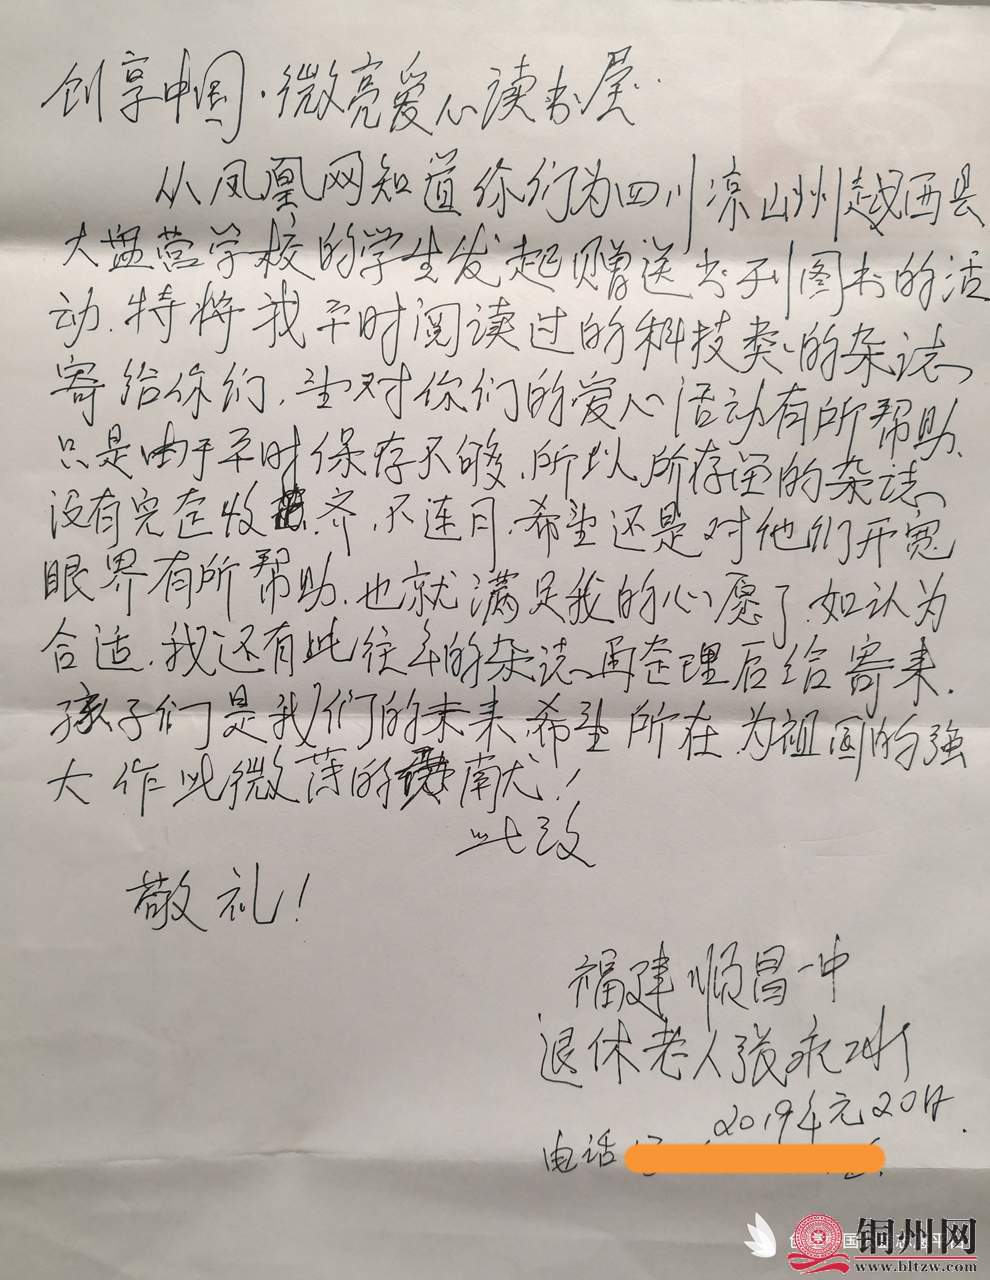 创享中国·微亮爱心读书屋:
从凤凰网知道你们为四川凉山州越西县
大盘营学校的学生发起赠送书刊图书的活
动.特将我平时阅读过的科技类的杂志
寄给你们,望对你们的爱心活动有所帮助.
只是由于平时保存不够,所以所存留的杂志
没有完整收齐,不连月,希望还是对他们开宽
眼界有所帮助.也就满足我的心愿了.如认为
合适,我还有些往年的杂志再整理后给寄来.
孩子们是我们的未来.希望所在为祖国的强
大作些微薄的贡献!
此致
敬礼!
福建顺昌一中
退休老人张
2019年元20日.
电话
铜州网
www.bltzw.com